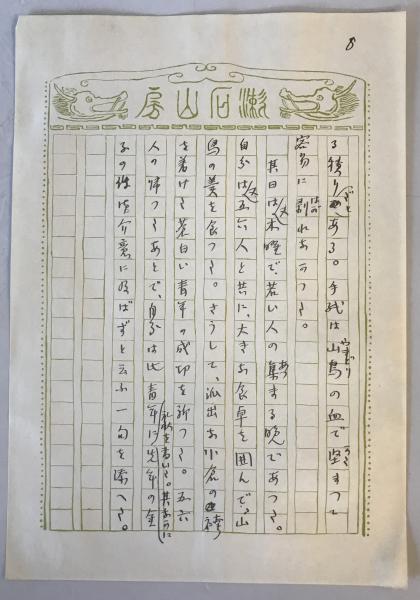 8
漱石山房
る積りである。手紙は山鳥の血で堅まつて
容易に剥れなかつた。
其日は又木曜で、若い人の集まる晩であつた。
自分は又五六人と共に、大きな食卓を囲んで、山
鳥の羹を食つた。さうして、派出な小倉の袴
を着けた蒼白い青年の成功を祈つた。五六
人の帰つたあとで、自分は此青年に礼状を書いた。其なかに先年の金
子の件御介意に及ばずと云ふ一句を添へた。